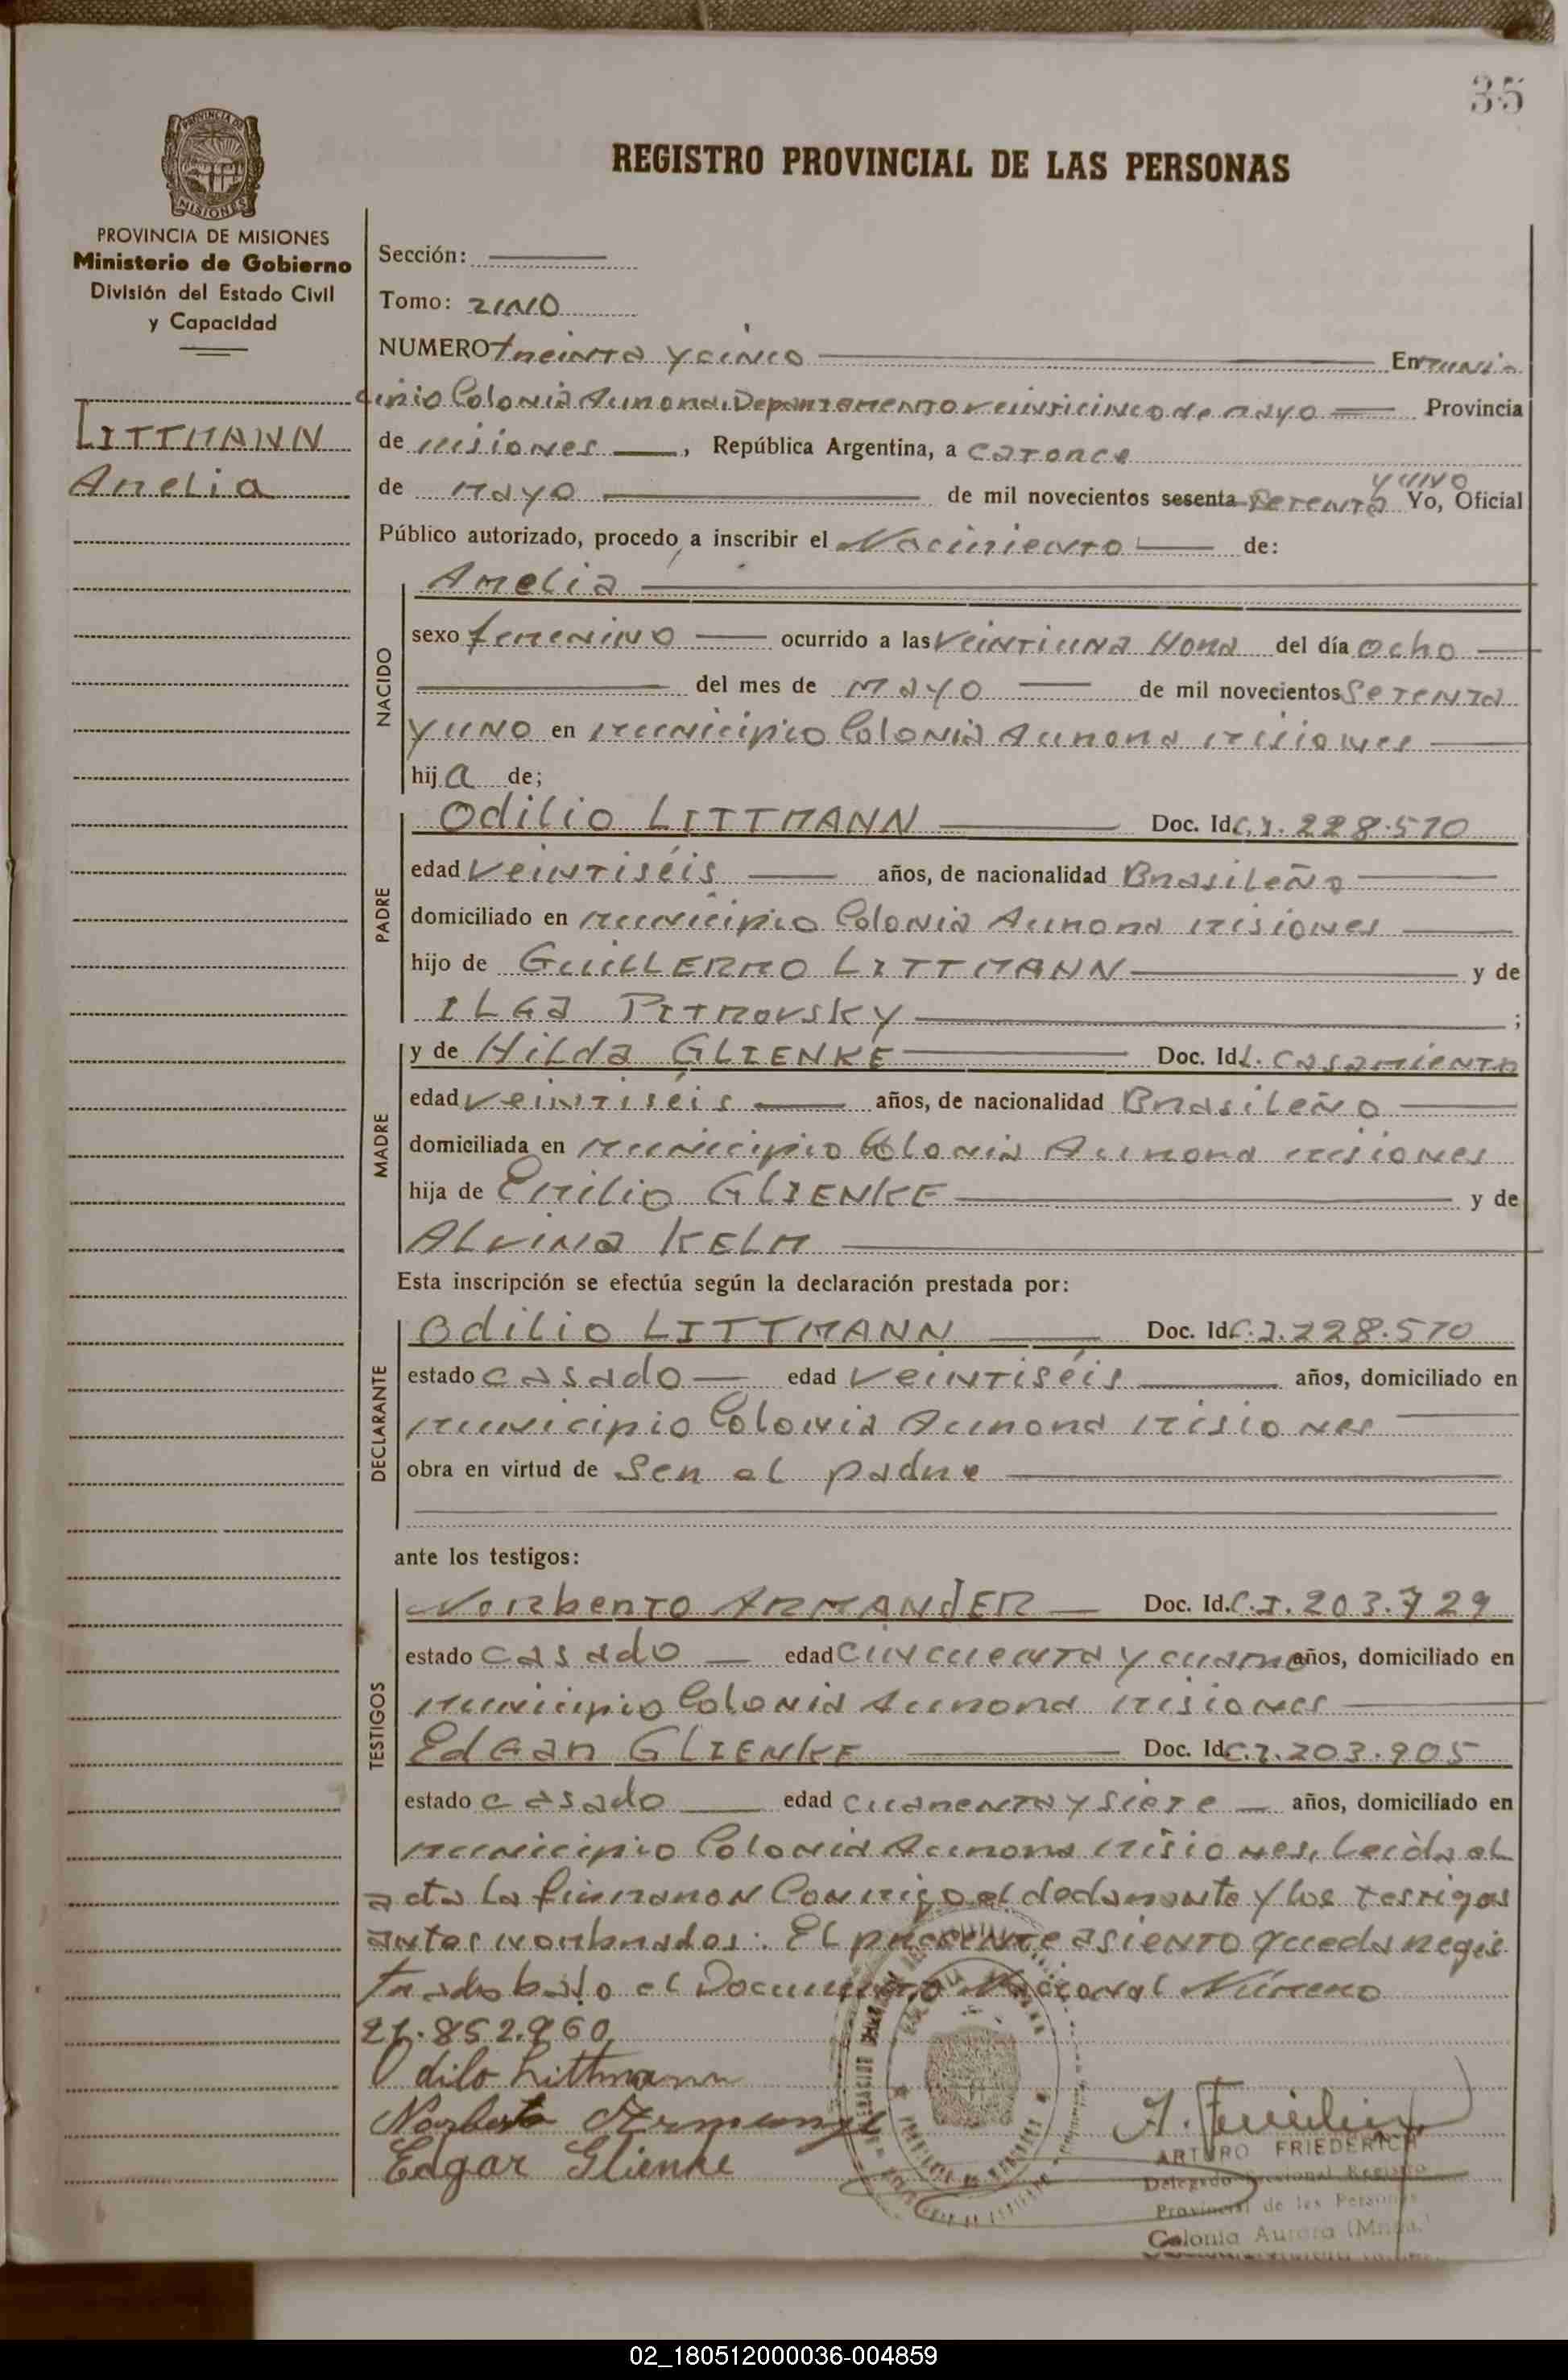 35
REGISTRO PROVINCIAL DE LAS PERSONAS
PROVINCIA DE MISIONES
Ministerio de Gobierno
División del Estado Civil
y Capacidad
LITTMANN
Amelia
Sección:
Tomo: uno
NUMERO treinta y cinco En muni
cipio Colonia Aurora, Departamento veinticinco de mayo Provincia
de misiones, República Argentina, a catorce
y uno
de mayo de mil novecientos sesenta setenta Yo, Oficial
Público autorizado, procedo a inscribir el Nacimiento de:
NACIDO
Amelia
sexo femenino ocurrido a las veintiuna Hora del día ocho
del mes de mayo de mil novecientos setenta
y uno en municipio Colonia Aurora misiones
hija de;
PADRE
Odilio LITTMANN Doc. Id C.I. 228.570
edad veintiséis años, de nacionalidad Brasileño
domiciliado en municipio Colonia Aurora misiones
hijo de GuiLLERMO LITTMANN y de
ILGa PITROVSKY ;
MADRE
y de Hilda GLIENKE Doc. Id L. casamiento
edad veintiséis años, de nacionalidad Brasileño
domiciliada en municipio Colonia Aurora misiones
hija de Emilio GLIENKE y de
ALvina KELM
Esta inscripción se efectúa según la declaración prestada por:
DECLARANTE
Odilio LITTMANN Doc. Id C.I. 228.570
estado casado edad veintiséis años, domiciliado en
municipio Colonia Aurora misiones
obra en virtud de Ser el padre
ante los testigos:
TESTIGOS
Norberto ARMANJER Doc. Id. C.I. 203.729
estado casado edad cincuenta y cuatro años, domiciliado en
municipio Colonia Aurora misiones
Edgar GLIENKE Doc. Id C.I. 203.905
estado casado edad cuarenta y siete años, domiciliado en
municipio Colonia Aurora misiones, Leída el
acta la firmaron Conmigo el declarante y los testigos
antes nombrados: El presente asiento queda regis
trado bajo el Documento Nacional Número
21.852.960
Odilo Littmann
Norberto
Edgar Glienke
ARTURO FRIEDERICH
Delegado Seccional Registro
Provincial de las Personas
Colonia Aurora (Mnes.)
02_180512000036-004859